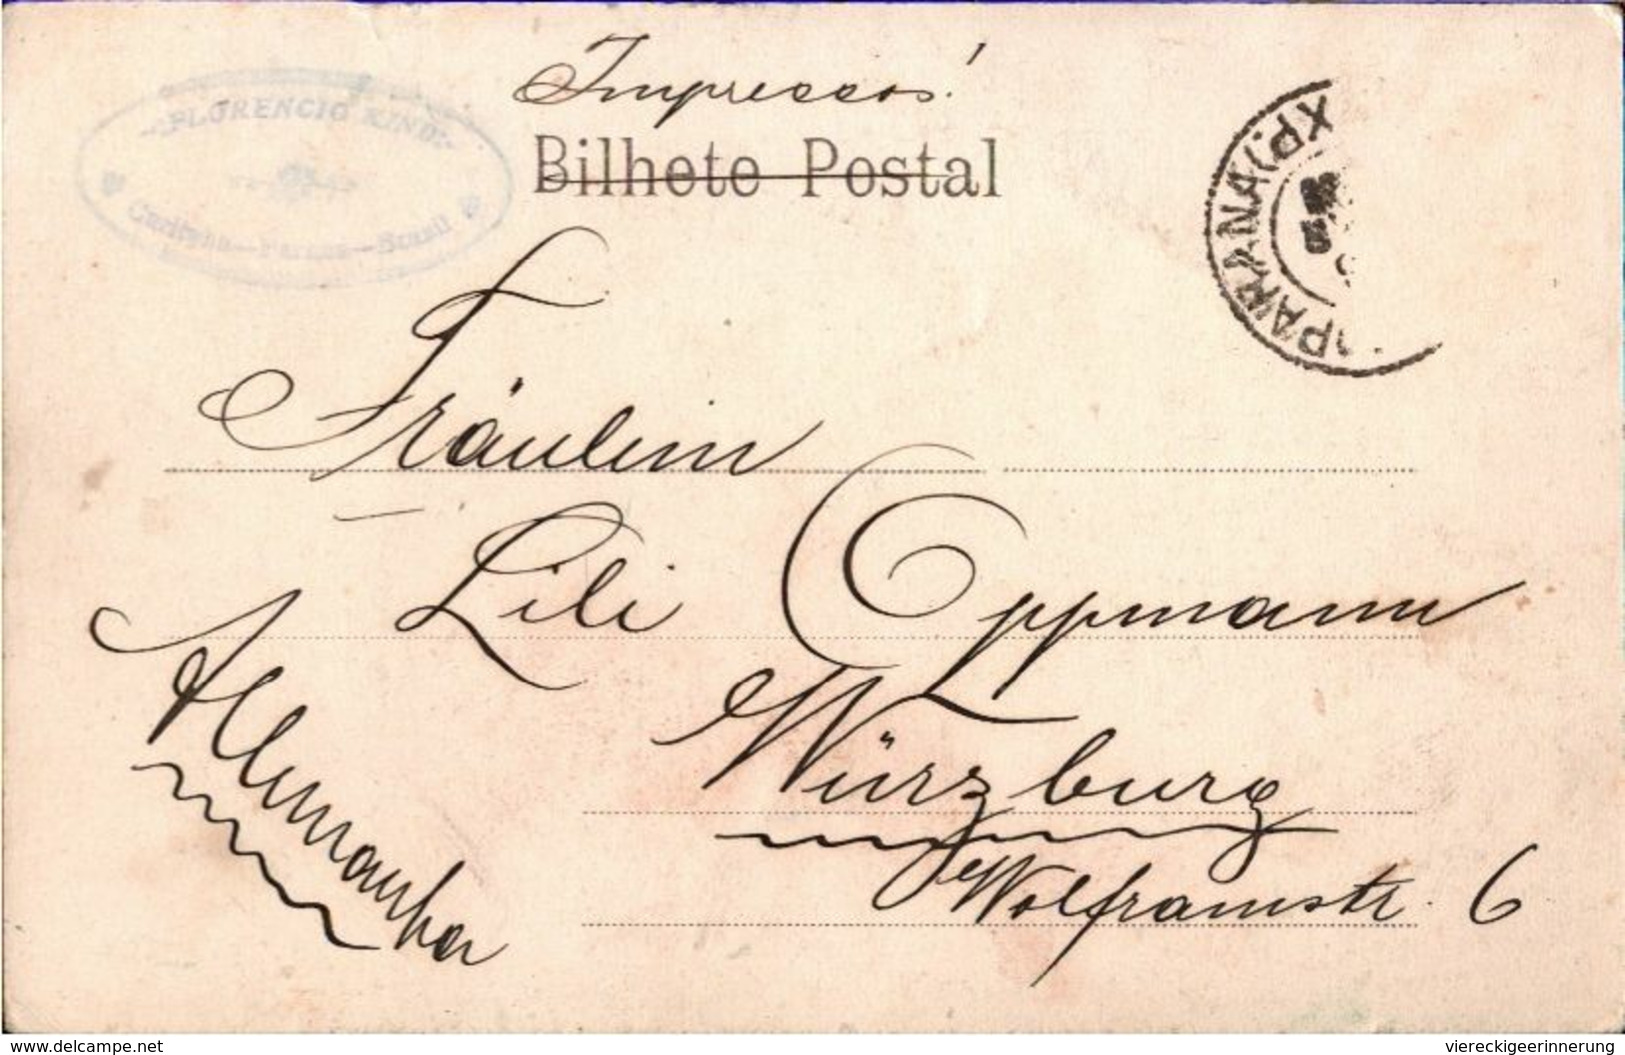 Impressos!
FLORENCIO
Curityba—Paraná—Brasil
Bilhete Postal
PARANA (XP.
Fräulein
Lili Oppmann
Würzburg
Wolframstr. 6
Allemanha
delcampe.net
viereckigeerinnerung